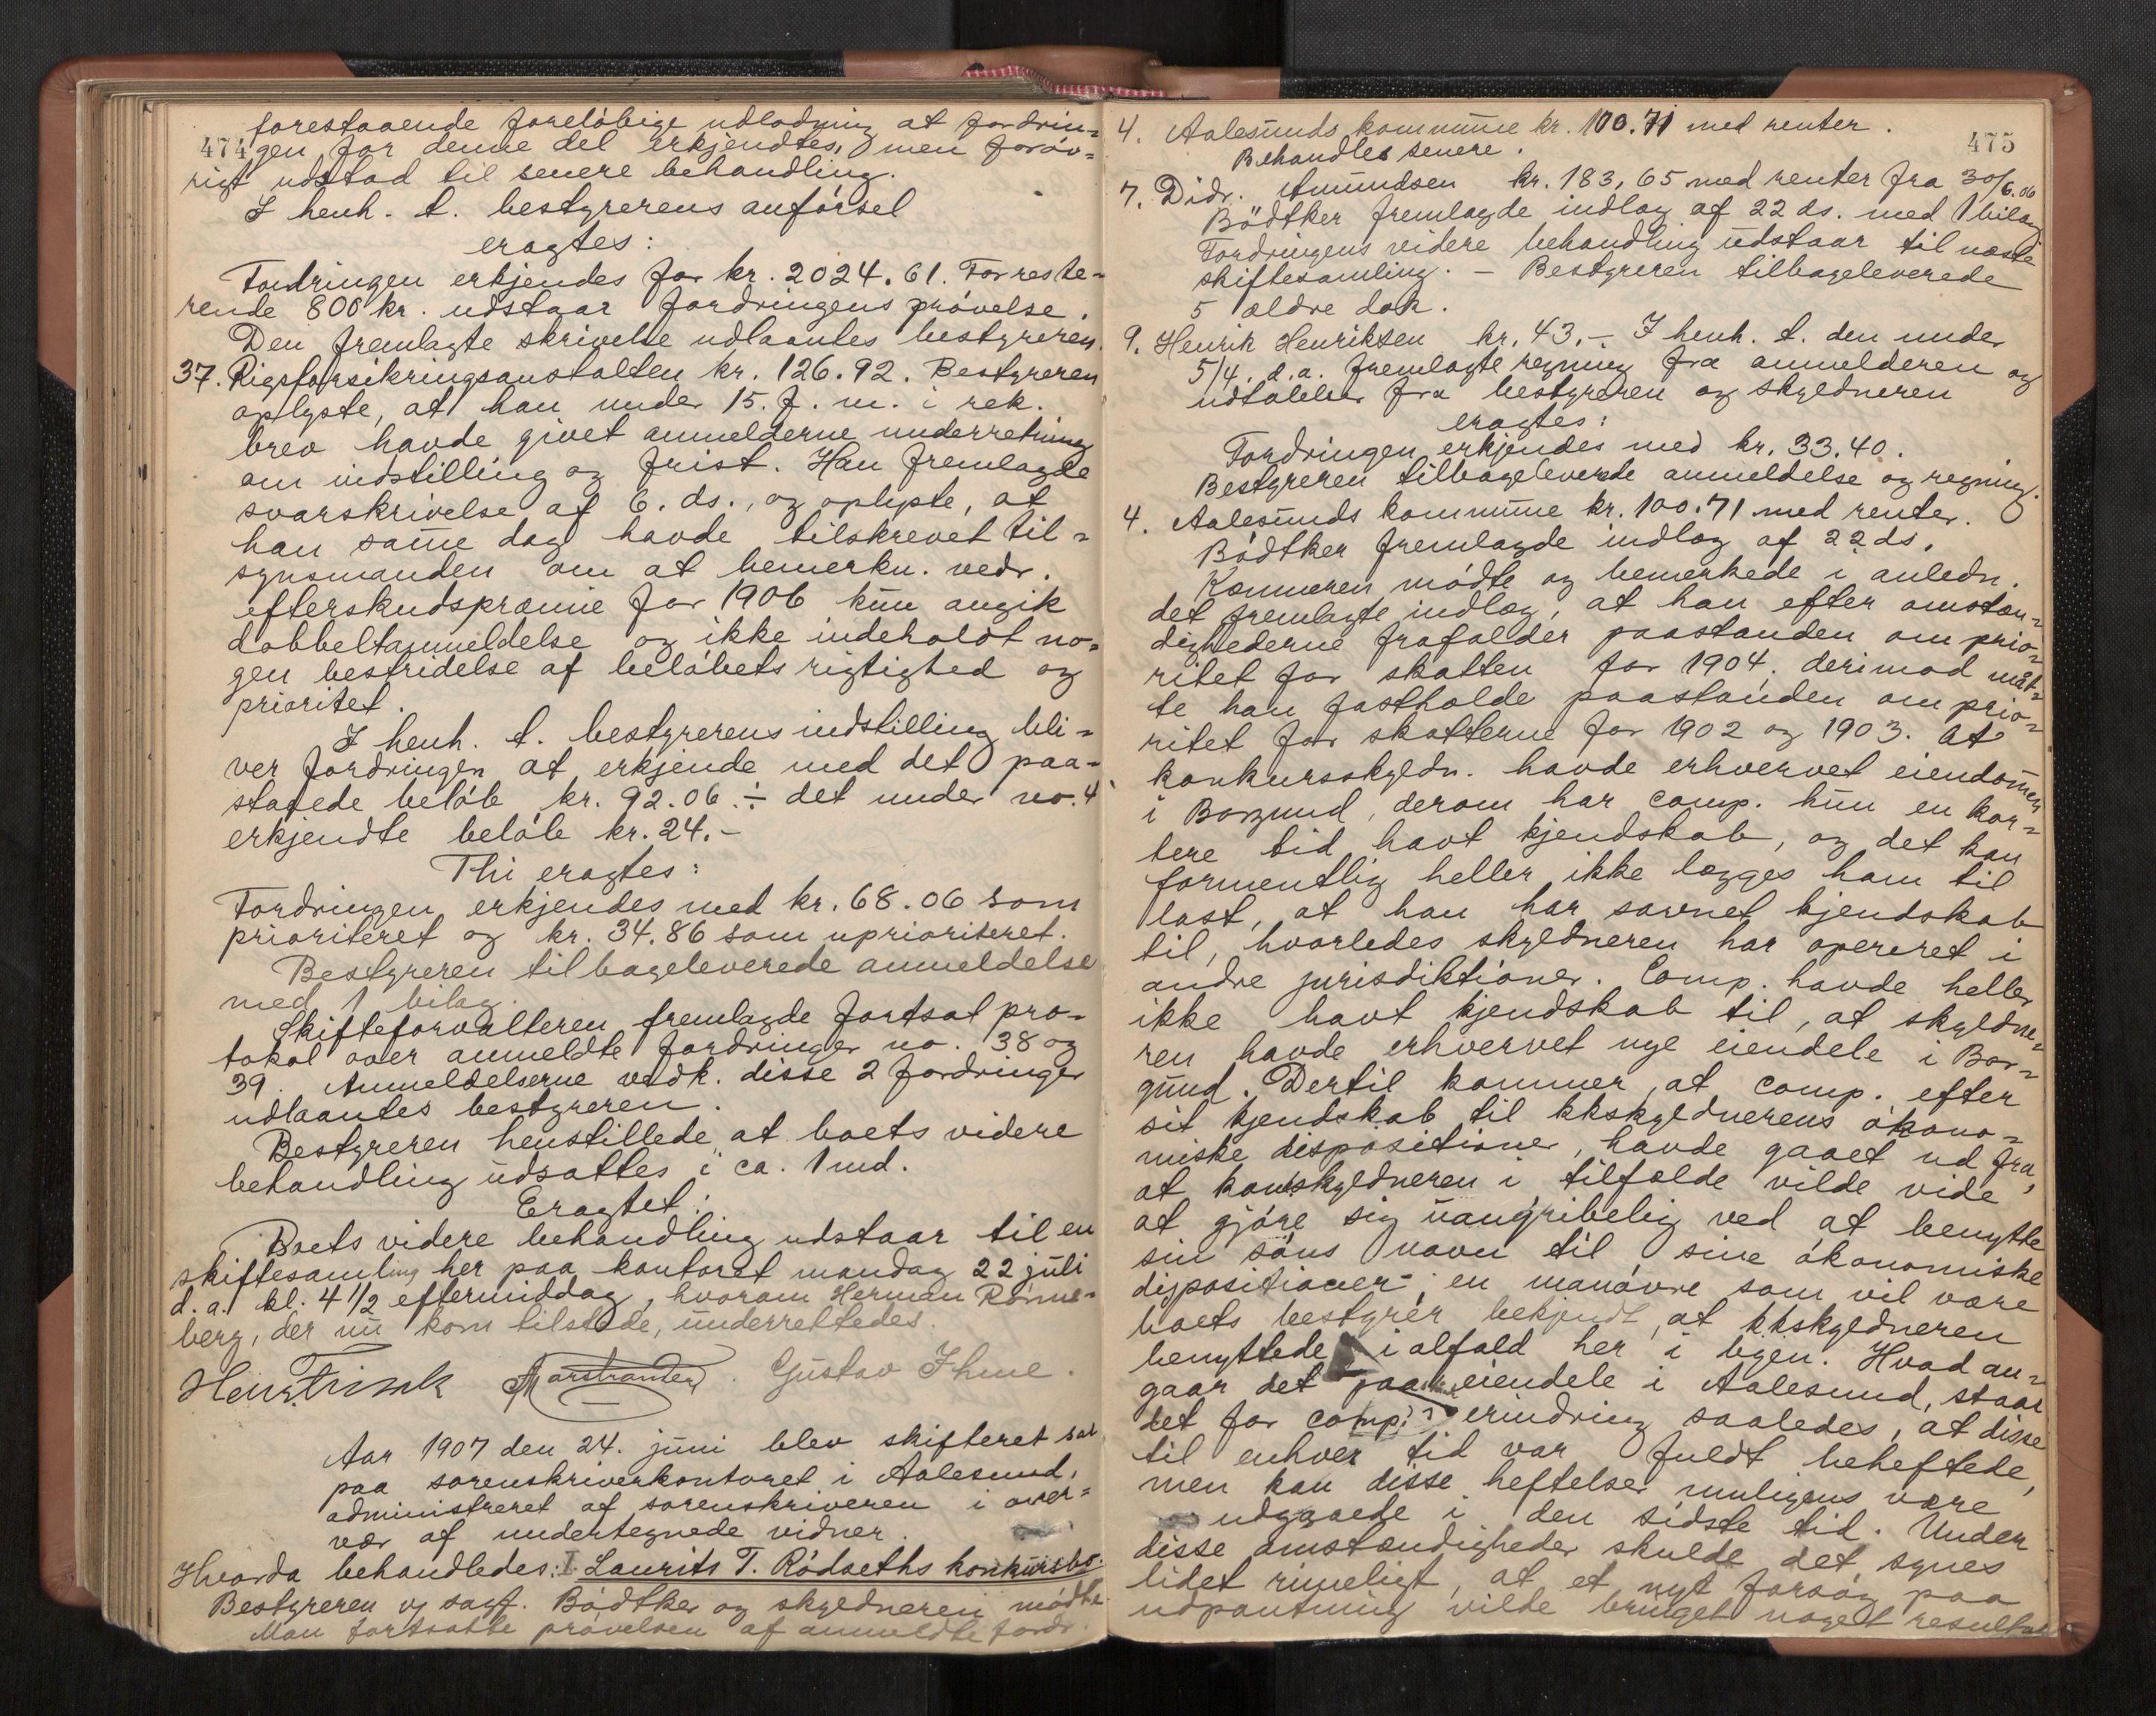 474
forestaaende foreløbige udlodning at fordrin=
gen for denne del erkjendtes, men forøv=
rigt udstod til senere behandling.
I henh. t. bestyrerens anførsel
eragtes:
Fordringen erkjendes for kr. 2024.61. For reste-
rende 800 kr. udstaar fordringens prøvelse.
Den fremlagte skrivelse udlaantes bestyreren.
37. Rigsforsikringsanstalten kr. 126.92. Bestyreren
oplyste, at han under 15. f. m. i rek.
brev havde givet anmelderne underretning
om indstilling og frist. Han fremlagde
svarskrivelse af 6. ds., og oplyste, at
han samme dag havde tilskrevet til=
synsmanden om at bemerkn. vedr.
efterskudspræmie for 1906 kun angik
dobbeltanmeldelse og ikke indeholdt no=
gen bestridelse af beløbets rigtighed og
prioritet.
I henh. t. bestyrerens indstilling bli=
ver fordringen at erkjende med det paa-
staaede beløb kr. 92.06 ÷ det under no. 4
erkjendte beløb kr. 24.-
Thi eragtes:
Fordringen erkjendes med kr. 68.06 som
prioriteret og kr. 34.86 som uprioriteret.
Bestyreren tilbageleverede anmeldelse
med 1 bilag.
Skifteforvalteren fremlagde fortsat pro-
tokol over anmeldte fordringer no. 38 og
39. Anmeldelserne vedk. disse 2 fordringer
udlaantes bestyreren.
Bestyreren henstillede, at boets videre
behandling udsattes i ca. 1 md.
Eragtet:
Boets videre behandling udstaar til en
skiftesamling her paa kontoret mandag 22 juli
d. a. kl. 4 1/2 eftermiddag, hvorom Herman Rønne-
berg, der nu kom tilstede, underrettedes.
Marstrander. Gustav Ihme.
Aar 1907 den 24. juni blev skifteret sat
paa sorenskriverkontoret i Aalesund,
administreret af sorenskriveren i over=
vær af undertegnede vidner.
Hvorda behandledes: I. Laurits T. Rødseths konkursbo.
Bestyreren og sagf. Bødtker og skyldneren mødte
Man fortsatte prøvelsen af anmeldte fordr.
475
4. Aalesunds kommune kr. 100.71 med renter.
Behandles senere.
7. Didr. Amundsen kr. 183,65 med renter fra 30/6.06
Bødtker fremlagde indlæg af 22 ds. med 1 bilag
Fordringens videre behandling udstaar til næste
skiftesamling. - Bestyreren tilbageleverede
5 ældre dok.
9. Henrik Henriksen kr. 43.- I henh. t. den under
5/4. d.a. fremlagte regning fra anmelderen og
udtalelser fra bestyreren og skyldneren
eragtes:
Fordringen erkjendes med kr. 33.40.
Bestyreren tilbageleverede anmeldelse og regning.
4. Aalesunds kommune kr. 100.71 med renter.
Bødtker fremlagde indlæg af 22 ds.
Kæmneren mødte og bemerkede i anledn.
det fremlagte indlæg, at han efter omstæn=
dighederne frafalder paastanden om prio=
ritet for skatten for 1904. derimod maat=
te han fastholde paastanden om prio=
ritet for skatterne for 1902 og 1903. At
konkursskyldn. havde erhvervet eiendommen
i Borgund, derom har comp. kun en kor=
tere tid havt kjendskab, og det kan
formentlig heller ikke lægges ham til
last, at han har savnet kjendskab
til, hvorledes skyldneren har opereret i
andre jurisdiktioner. Comp. havde heller
ikke havt kjendskab til, at skyldne=
ren havde erhvervet nye eiendele i Bor=
gund. Dertil kommer, at comp. efter
sit kjendskab til kkskyldnerens økono=
miske dispositioner, havde gaaet ud fra,
at konkskyldneren i tilfælde vilde vide
at gjøre sig uangribelig ved at benytte
sin søns navn til sine økonomiske
dispositioner - en manøvre som vil være
boets bestyrer bekjendt, at kkskyldneren
benyttede ialfald her i byen. Hvad an=
gaar det paa eiendele i Aalesund, staar
det for comp.s erindring saaledes, at disse
til enhver tid var fuldt beheftede,
men kan disse heftelser muligens være
udgaaede i den sidste tid. Under
disse omstændigheder skulde det synes
lidet rimeligt, at et nyt forsøg paa
udpantning vilde bringet noget resultat